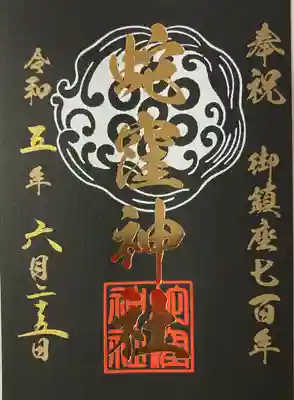 奉祝 御鎮座七百年
蛇窪神社
令和五年六月二五日